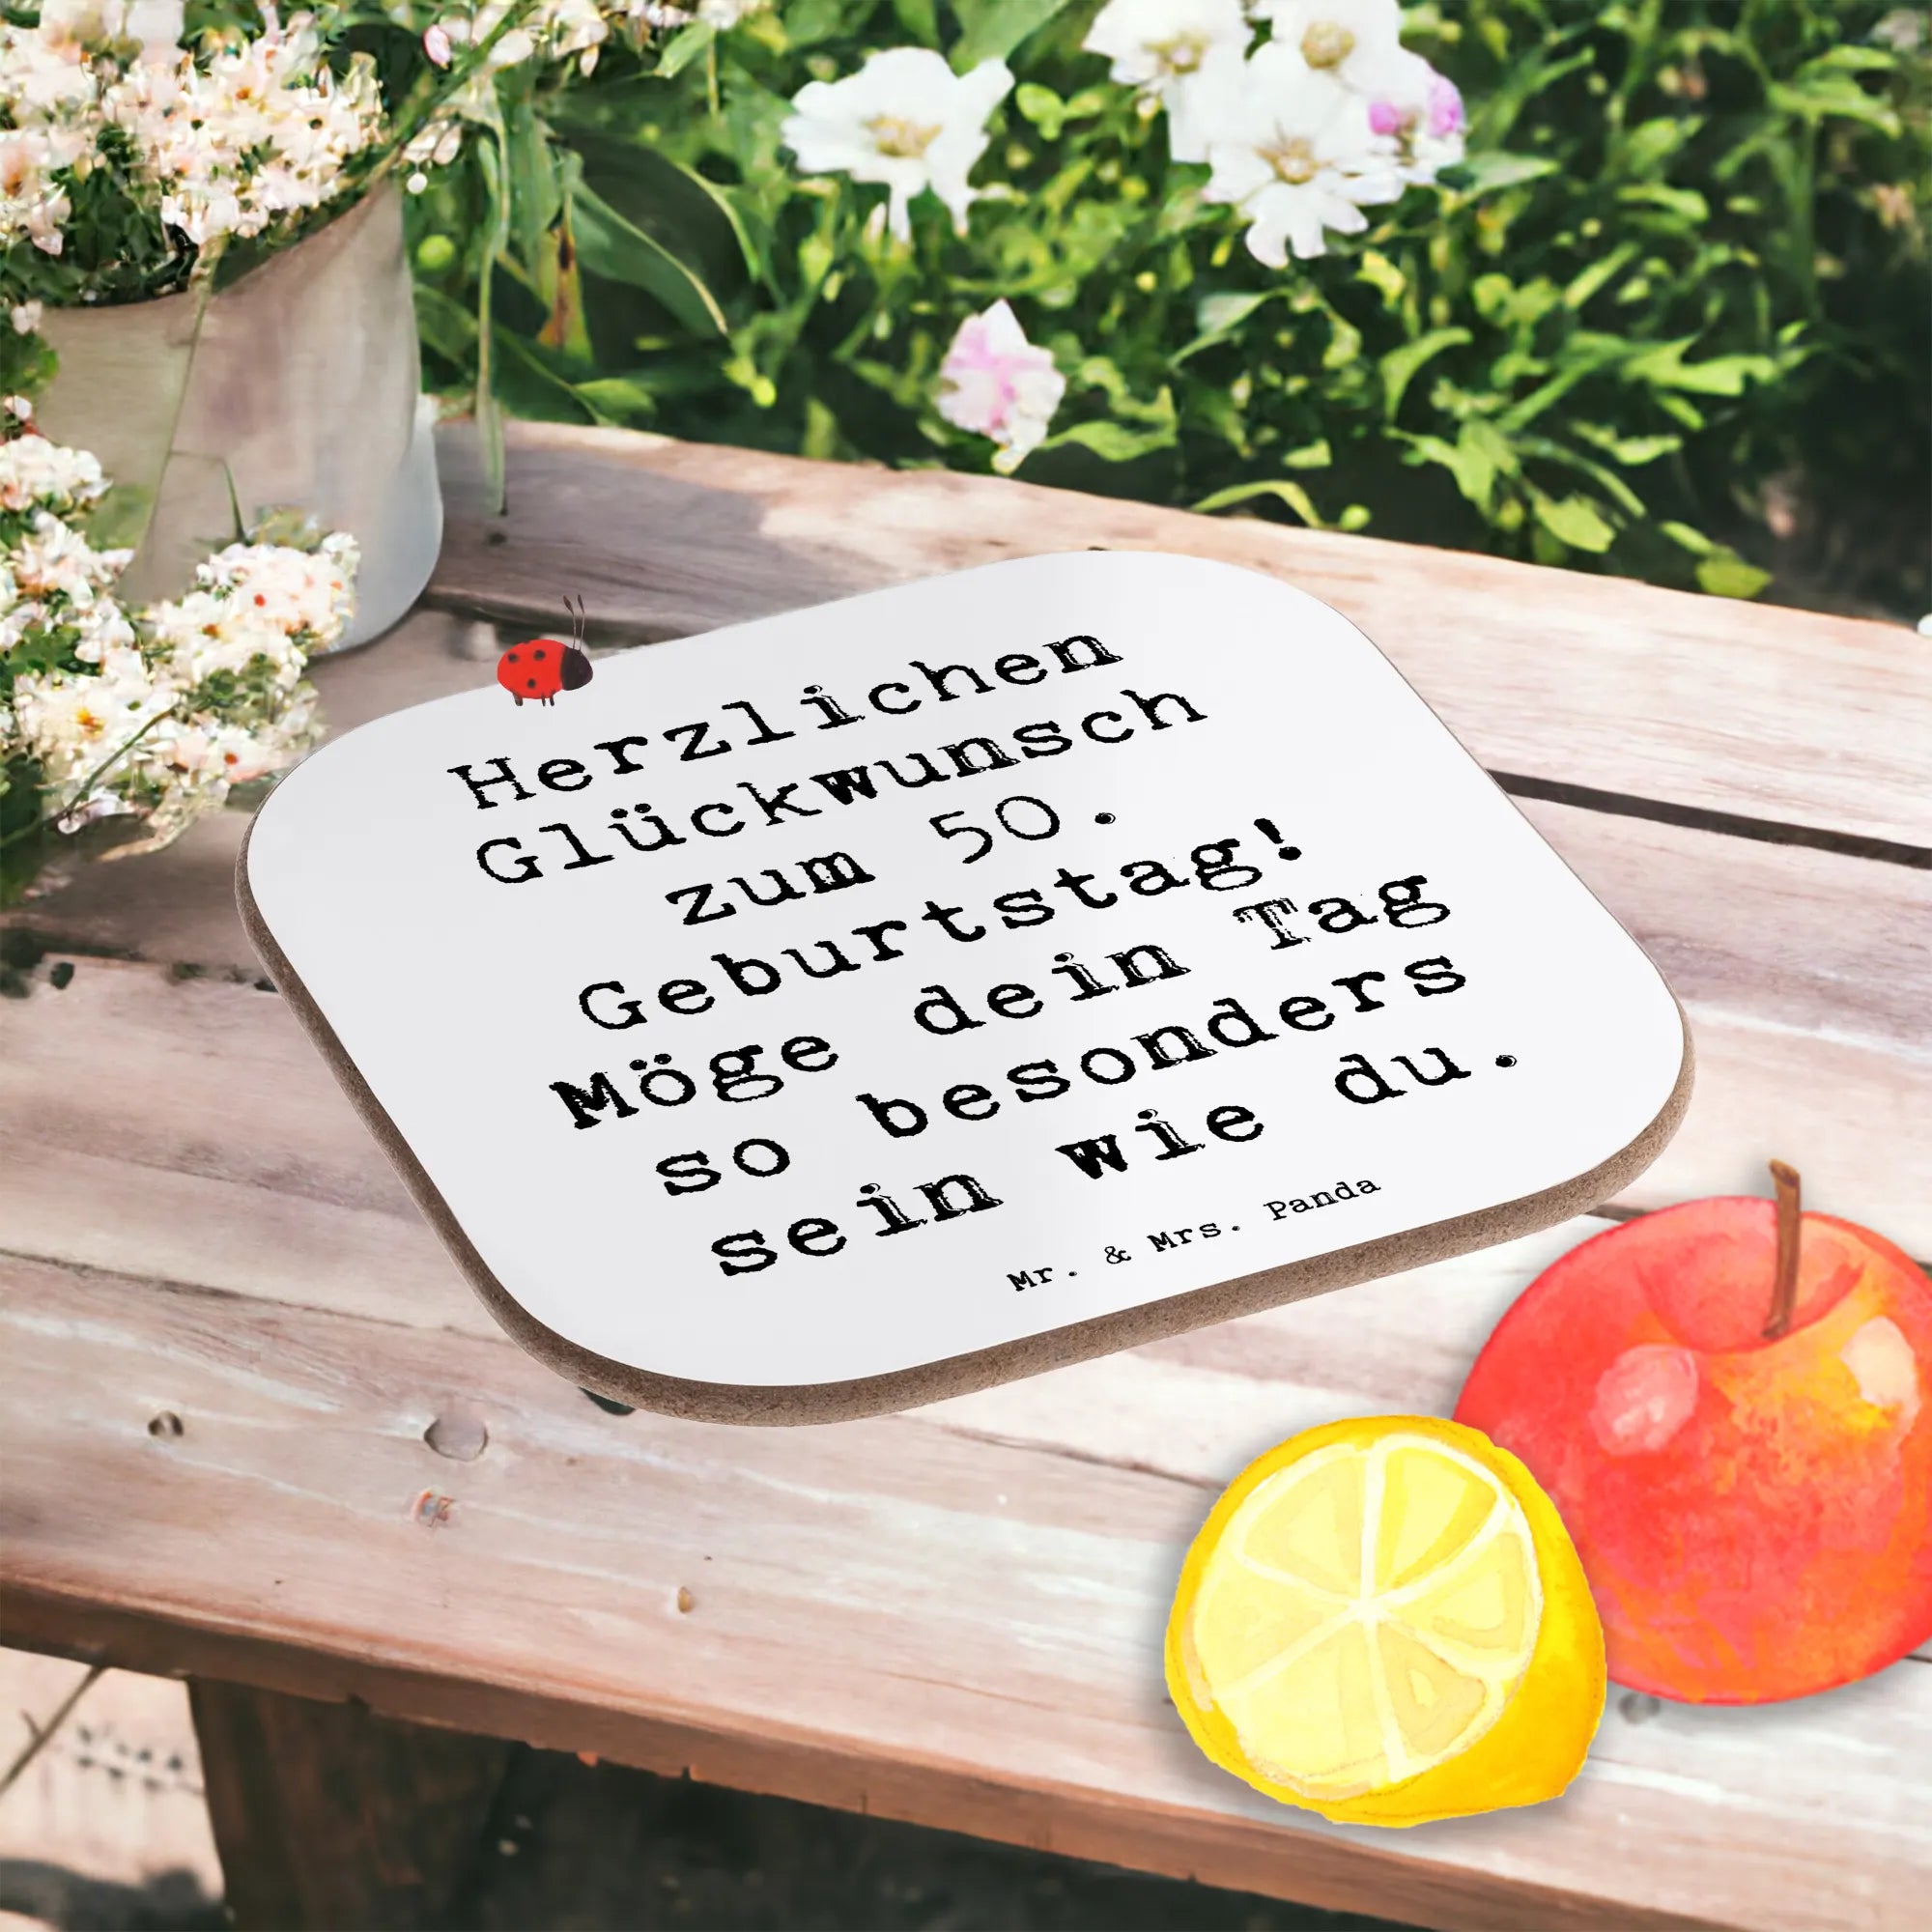 Herzlichen
Glückwunsch
zum 50.
Geburtstag!
Möge dein Tag
so besonders
sein wie du.
Mr. & Mrs. Panda